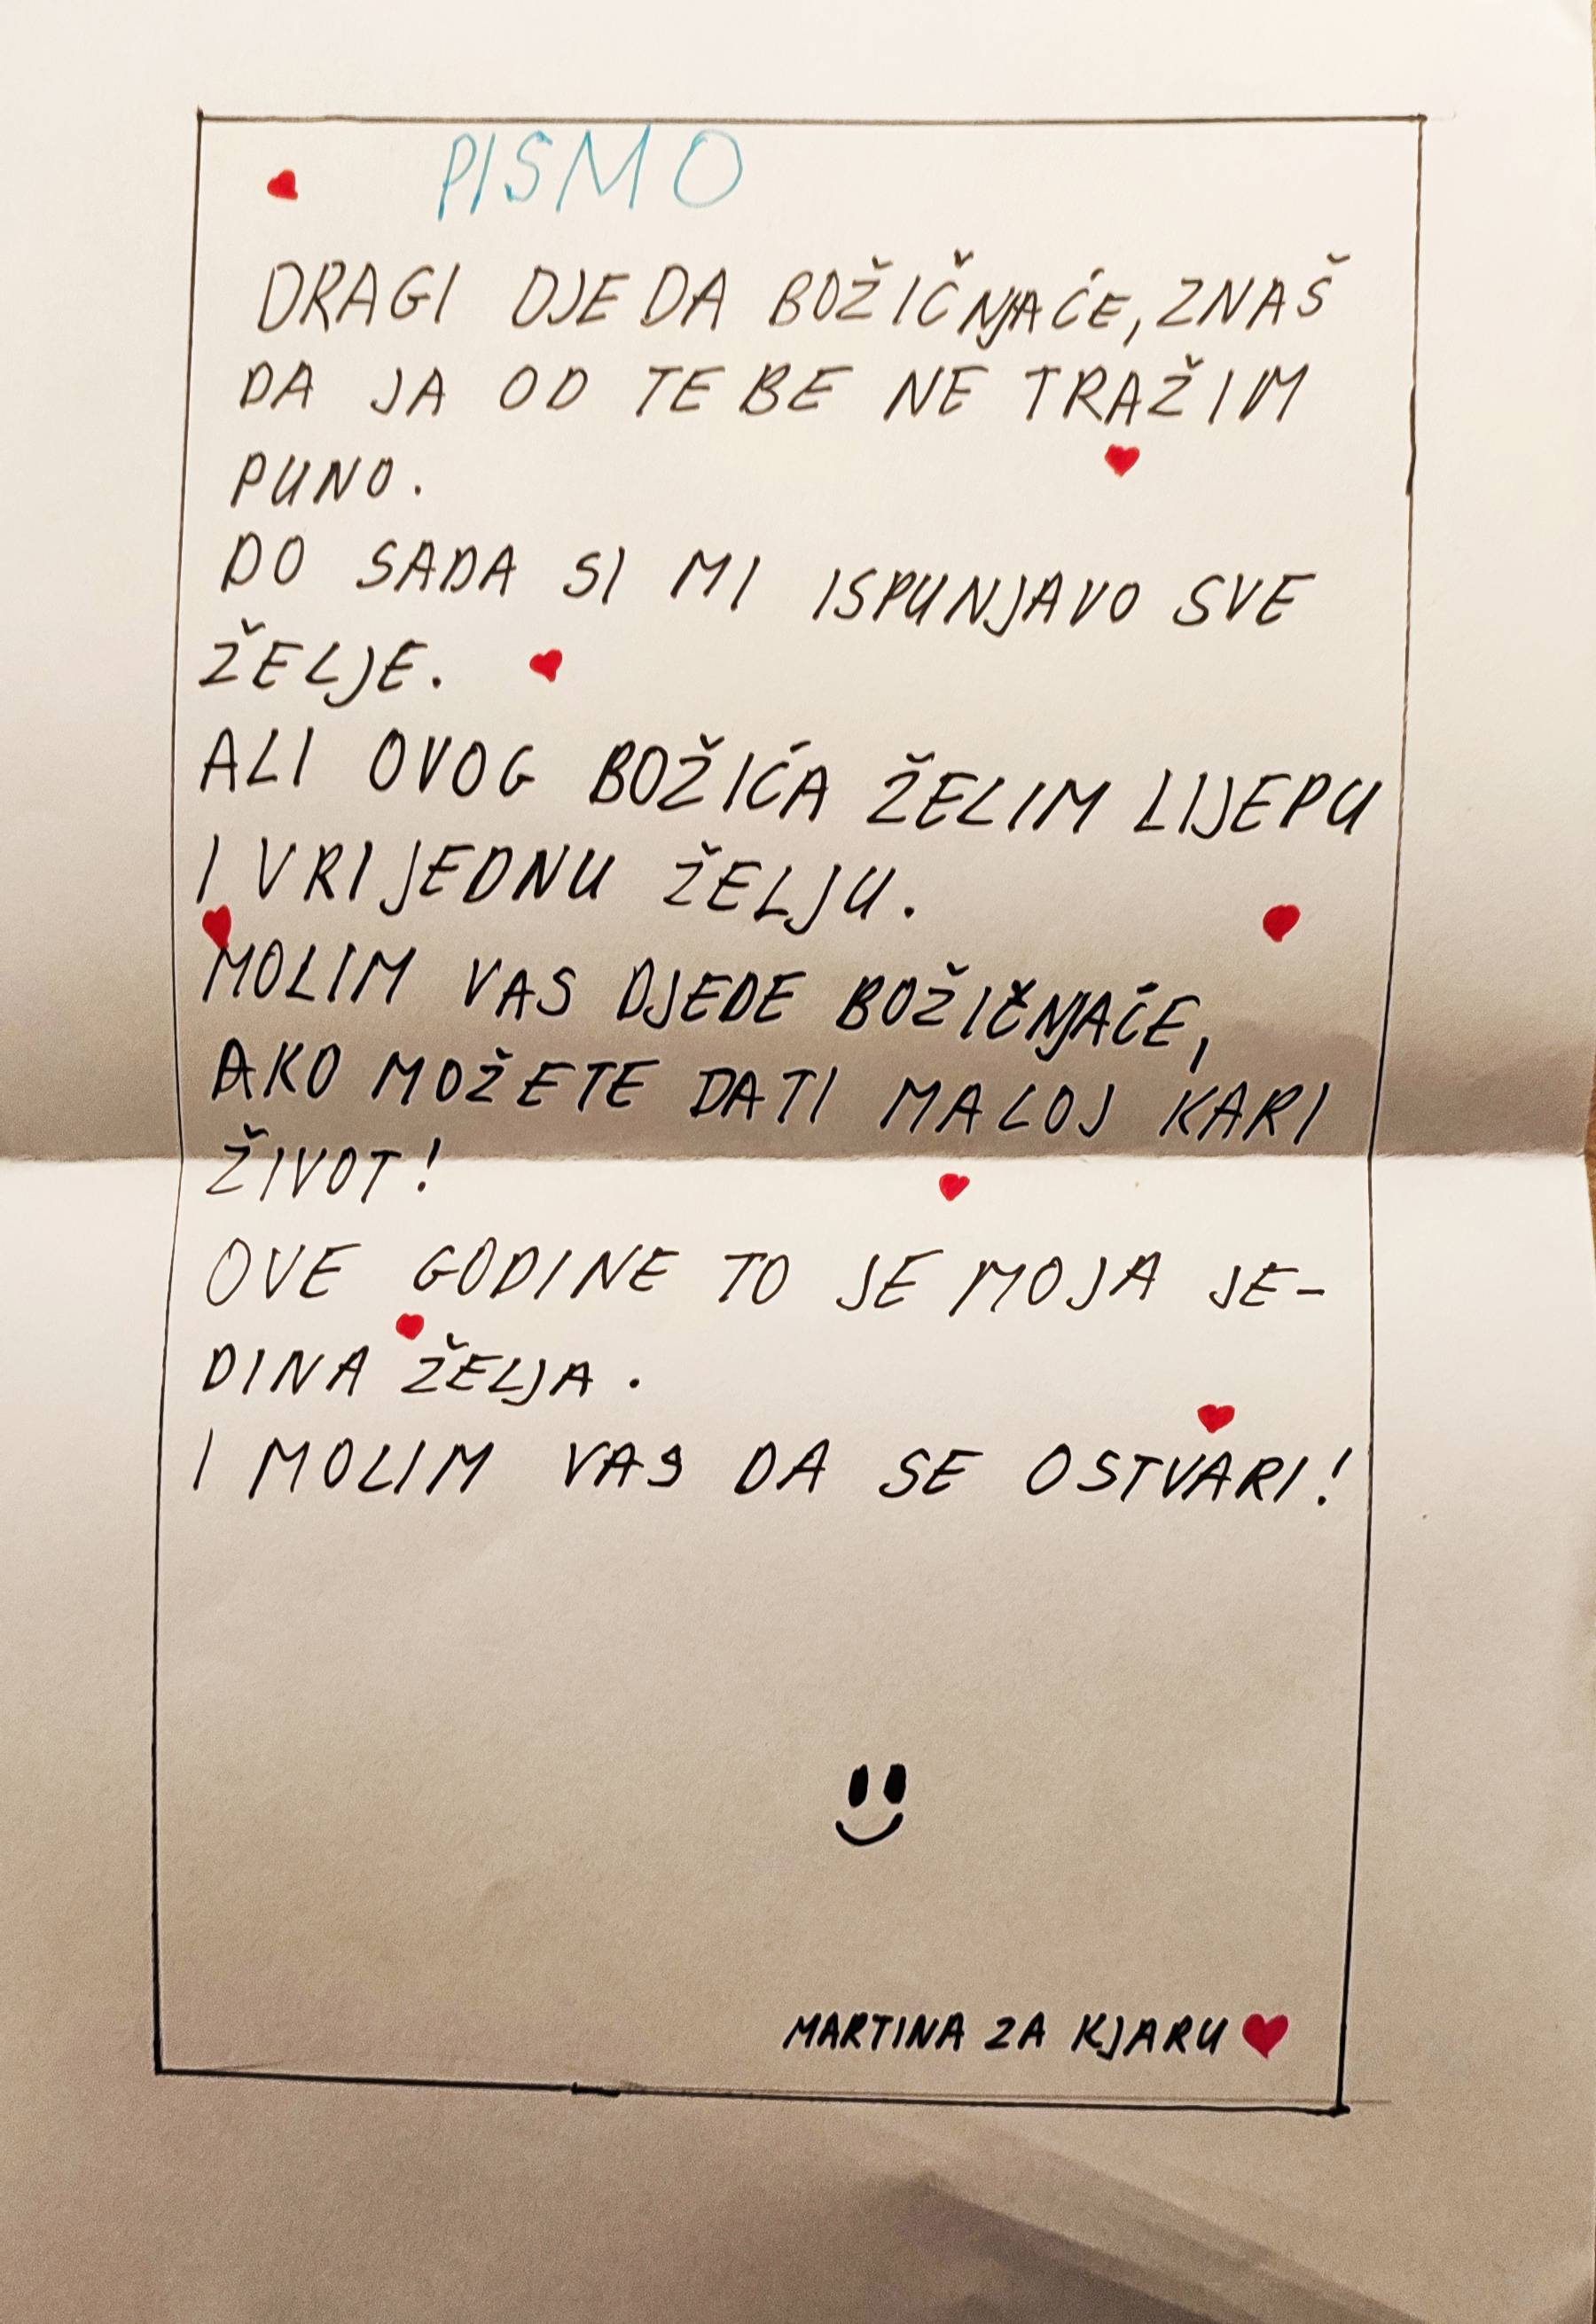 PISMO
DRAGI DJEDA BOŽIČNJAĆE, ZNAŠ
DA JA OD TEBE NE TRAŽIM
PUNO.
DO SADA SI MI ISPUNJAVO SVE
ŽELJE.
ALI OVOG BOŽIĆA ŽELIM LIJEPU
I VRIJEDNU ŽELJU.
MOLIM VAS DJEDE BOŽIČNJAĆE,
AKO MOŽETE DATI MALOJ KARI
ŽIVOT!
OVE GODINE TO JE MOJA JE-
DINA ŽELJA.
I MOLIM VAS DA SE OSTVARI!
MARTINA ZA KJARU